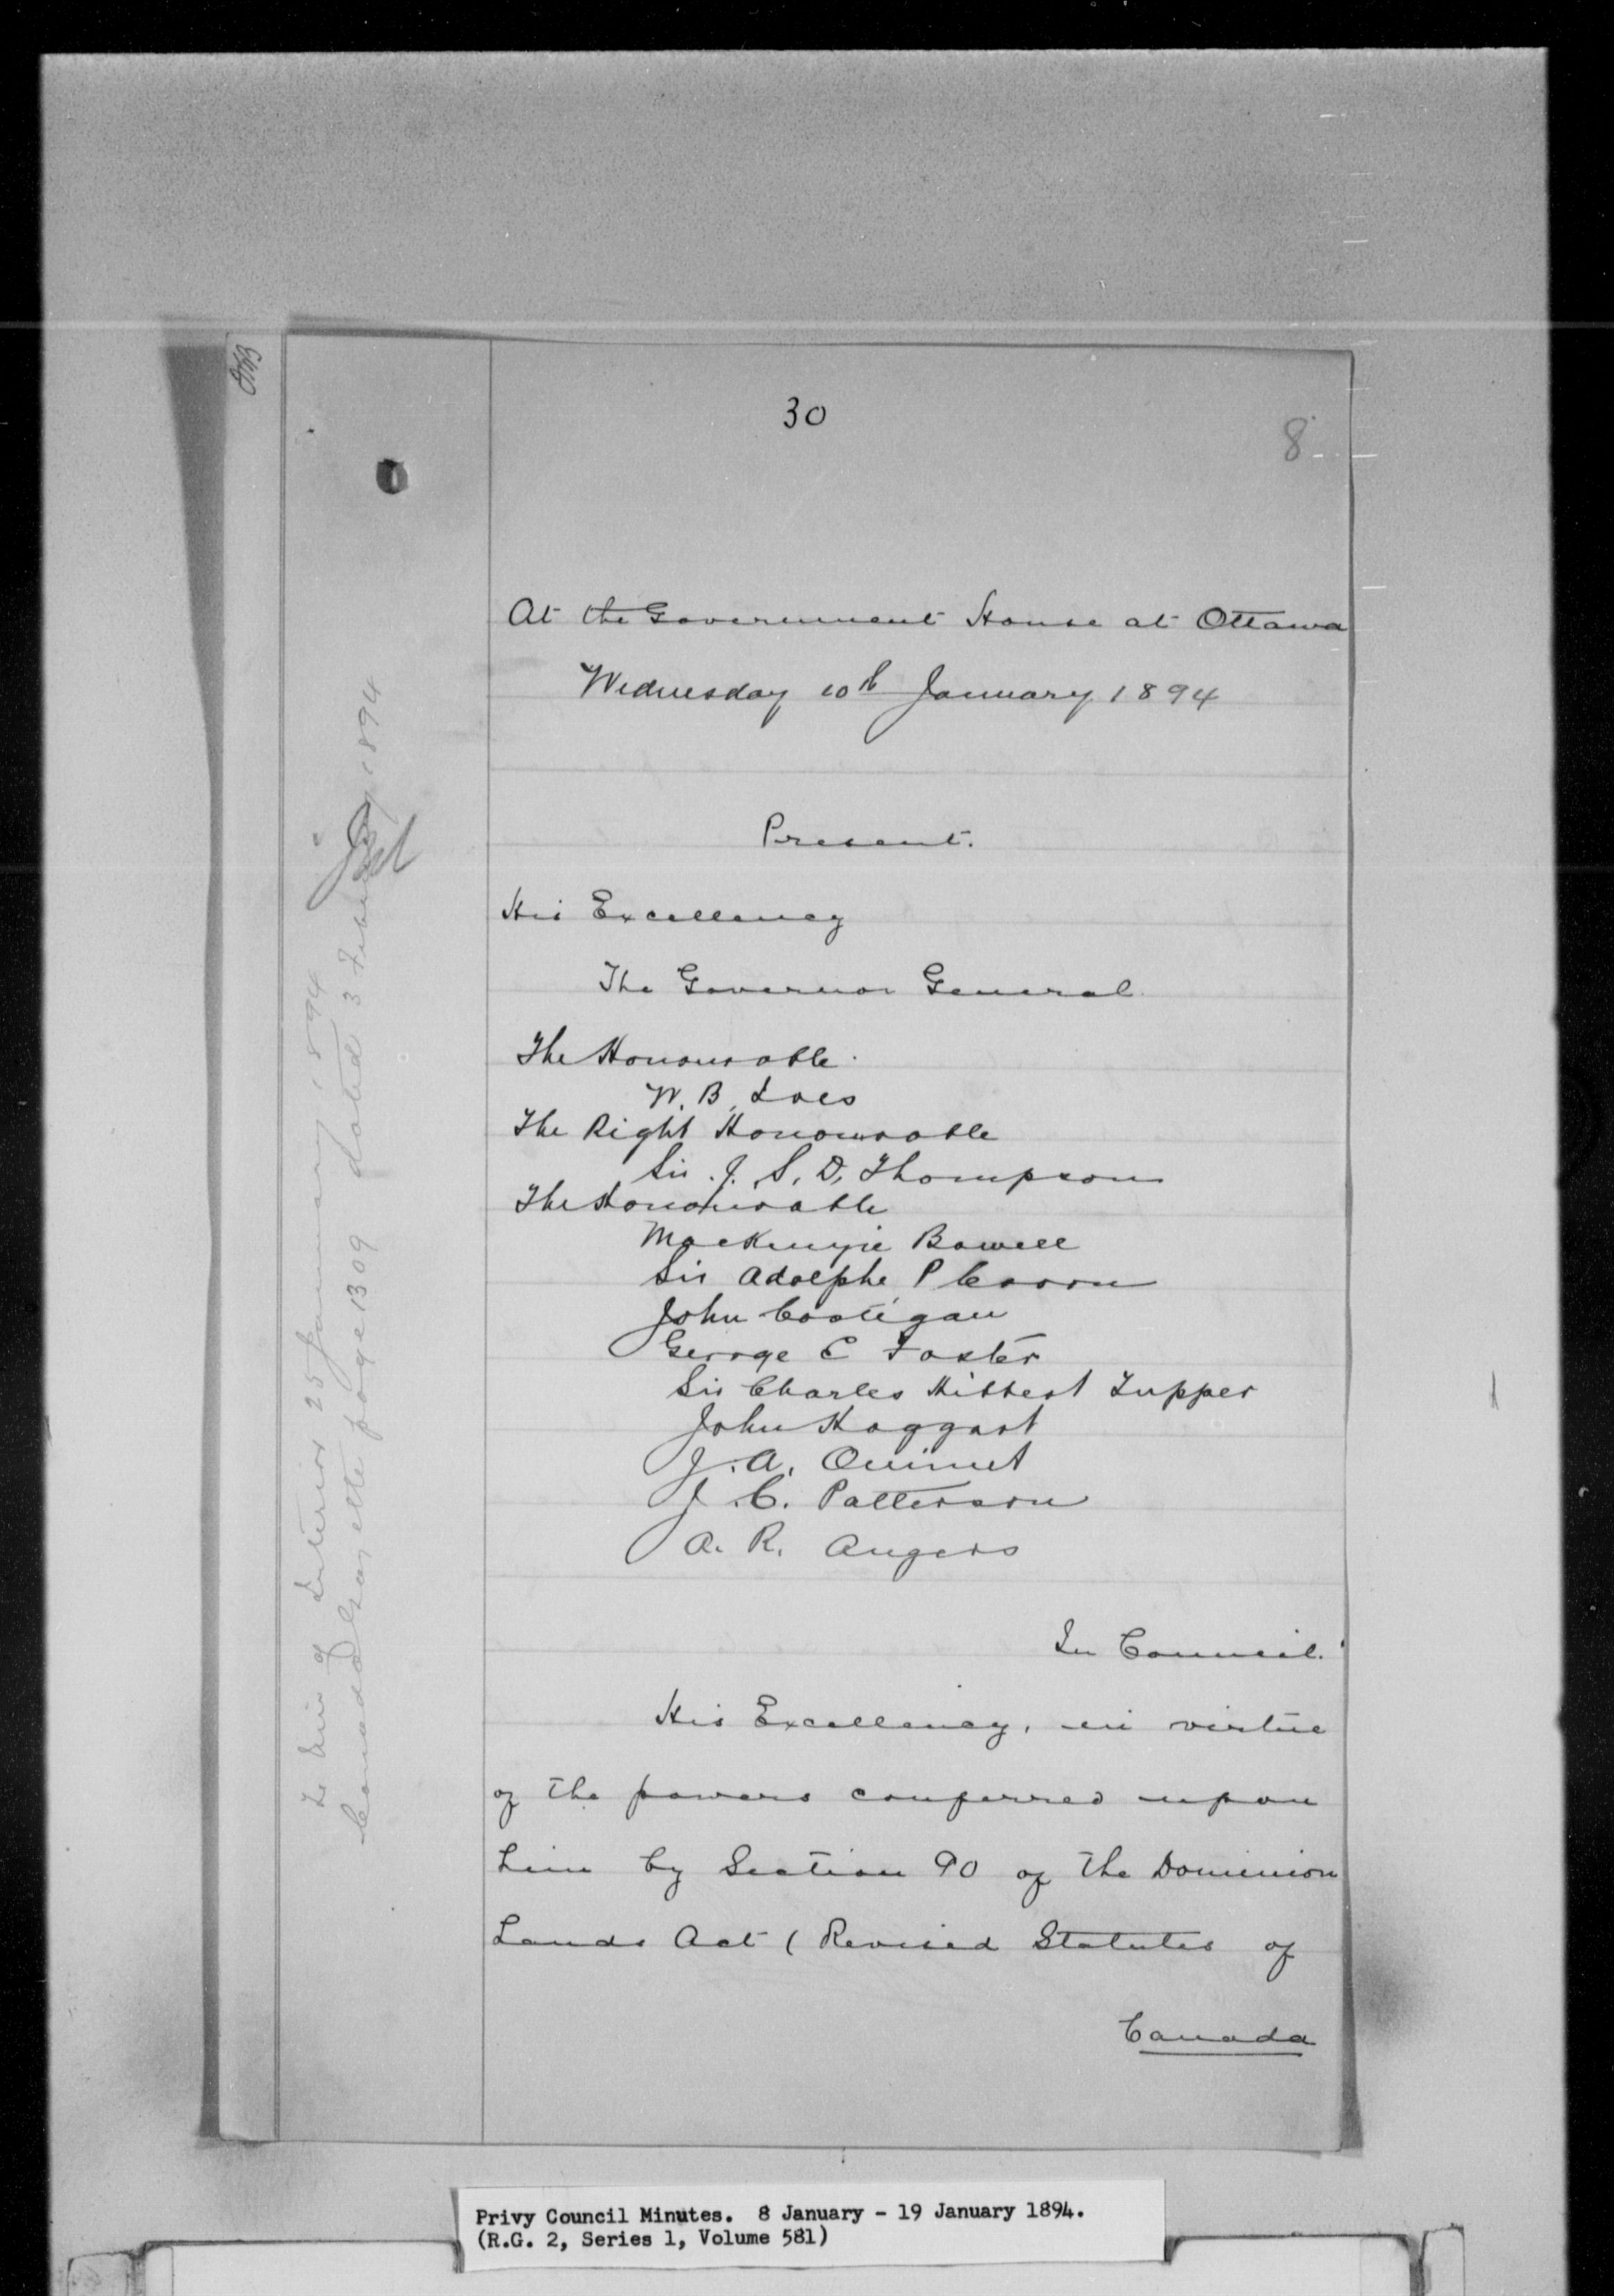 30
8
At the Government House at Ottawa
Wednesday 10th January 1894
Present.
His Excellency
The Governor General.
The Honourable
W. B. Ives
The Right Honourable
Sir J. S. D. Thompson
The Honourable
MacKenzie Bowell
Sir Adolphe P Caron
John Costigan
George E Foster
Sir Charles Hibbert Tupper
John Haggart
J. A. Ouimet
J. C. Patterson
A. R. Angers
In Council.
His Excellency, in virtue
of the powers conferred upon
him by Section 90 of the Dominion
Lands Act (Revised Statutes of
Canada
To Min of Interior 25 January 1894
Canada Gazette page 1309 dated 3 1894
Privy Council Minutes. 8 January - 19 January 1894.
(R.G. 2, Series 1, Volume 581)